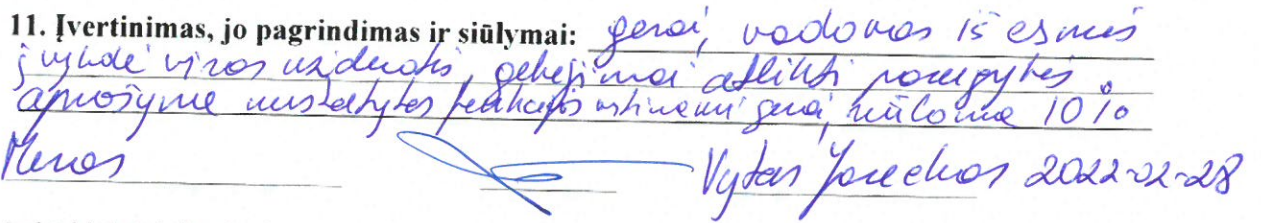 11. Įvertinimas, jo pagrindimas ir siūlymai: gerai, vadovas iš esmės
įvykdė visas užduotis, gebėjimai atlikti pareigybės
aprašyme nustatytas funkcijas vertinami gerai, siūloma 10%
Meras Vytas Jareckas 2022-02-28